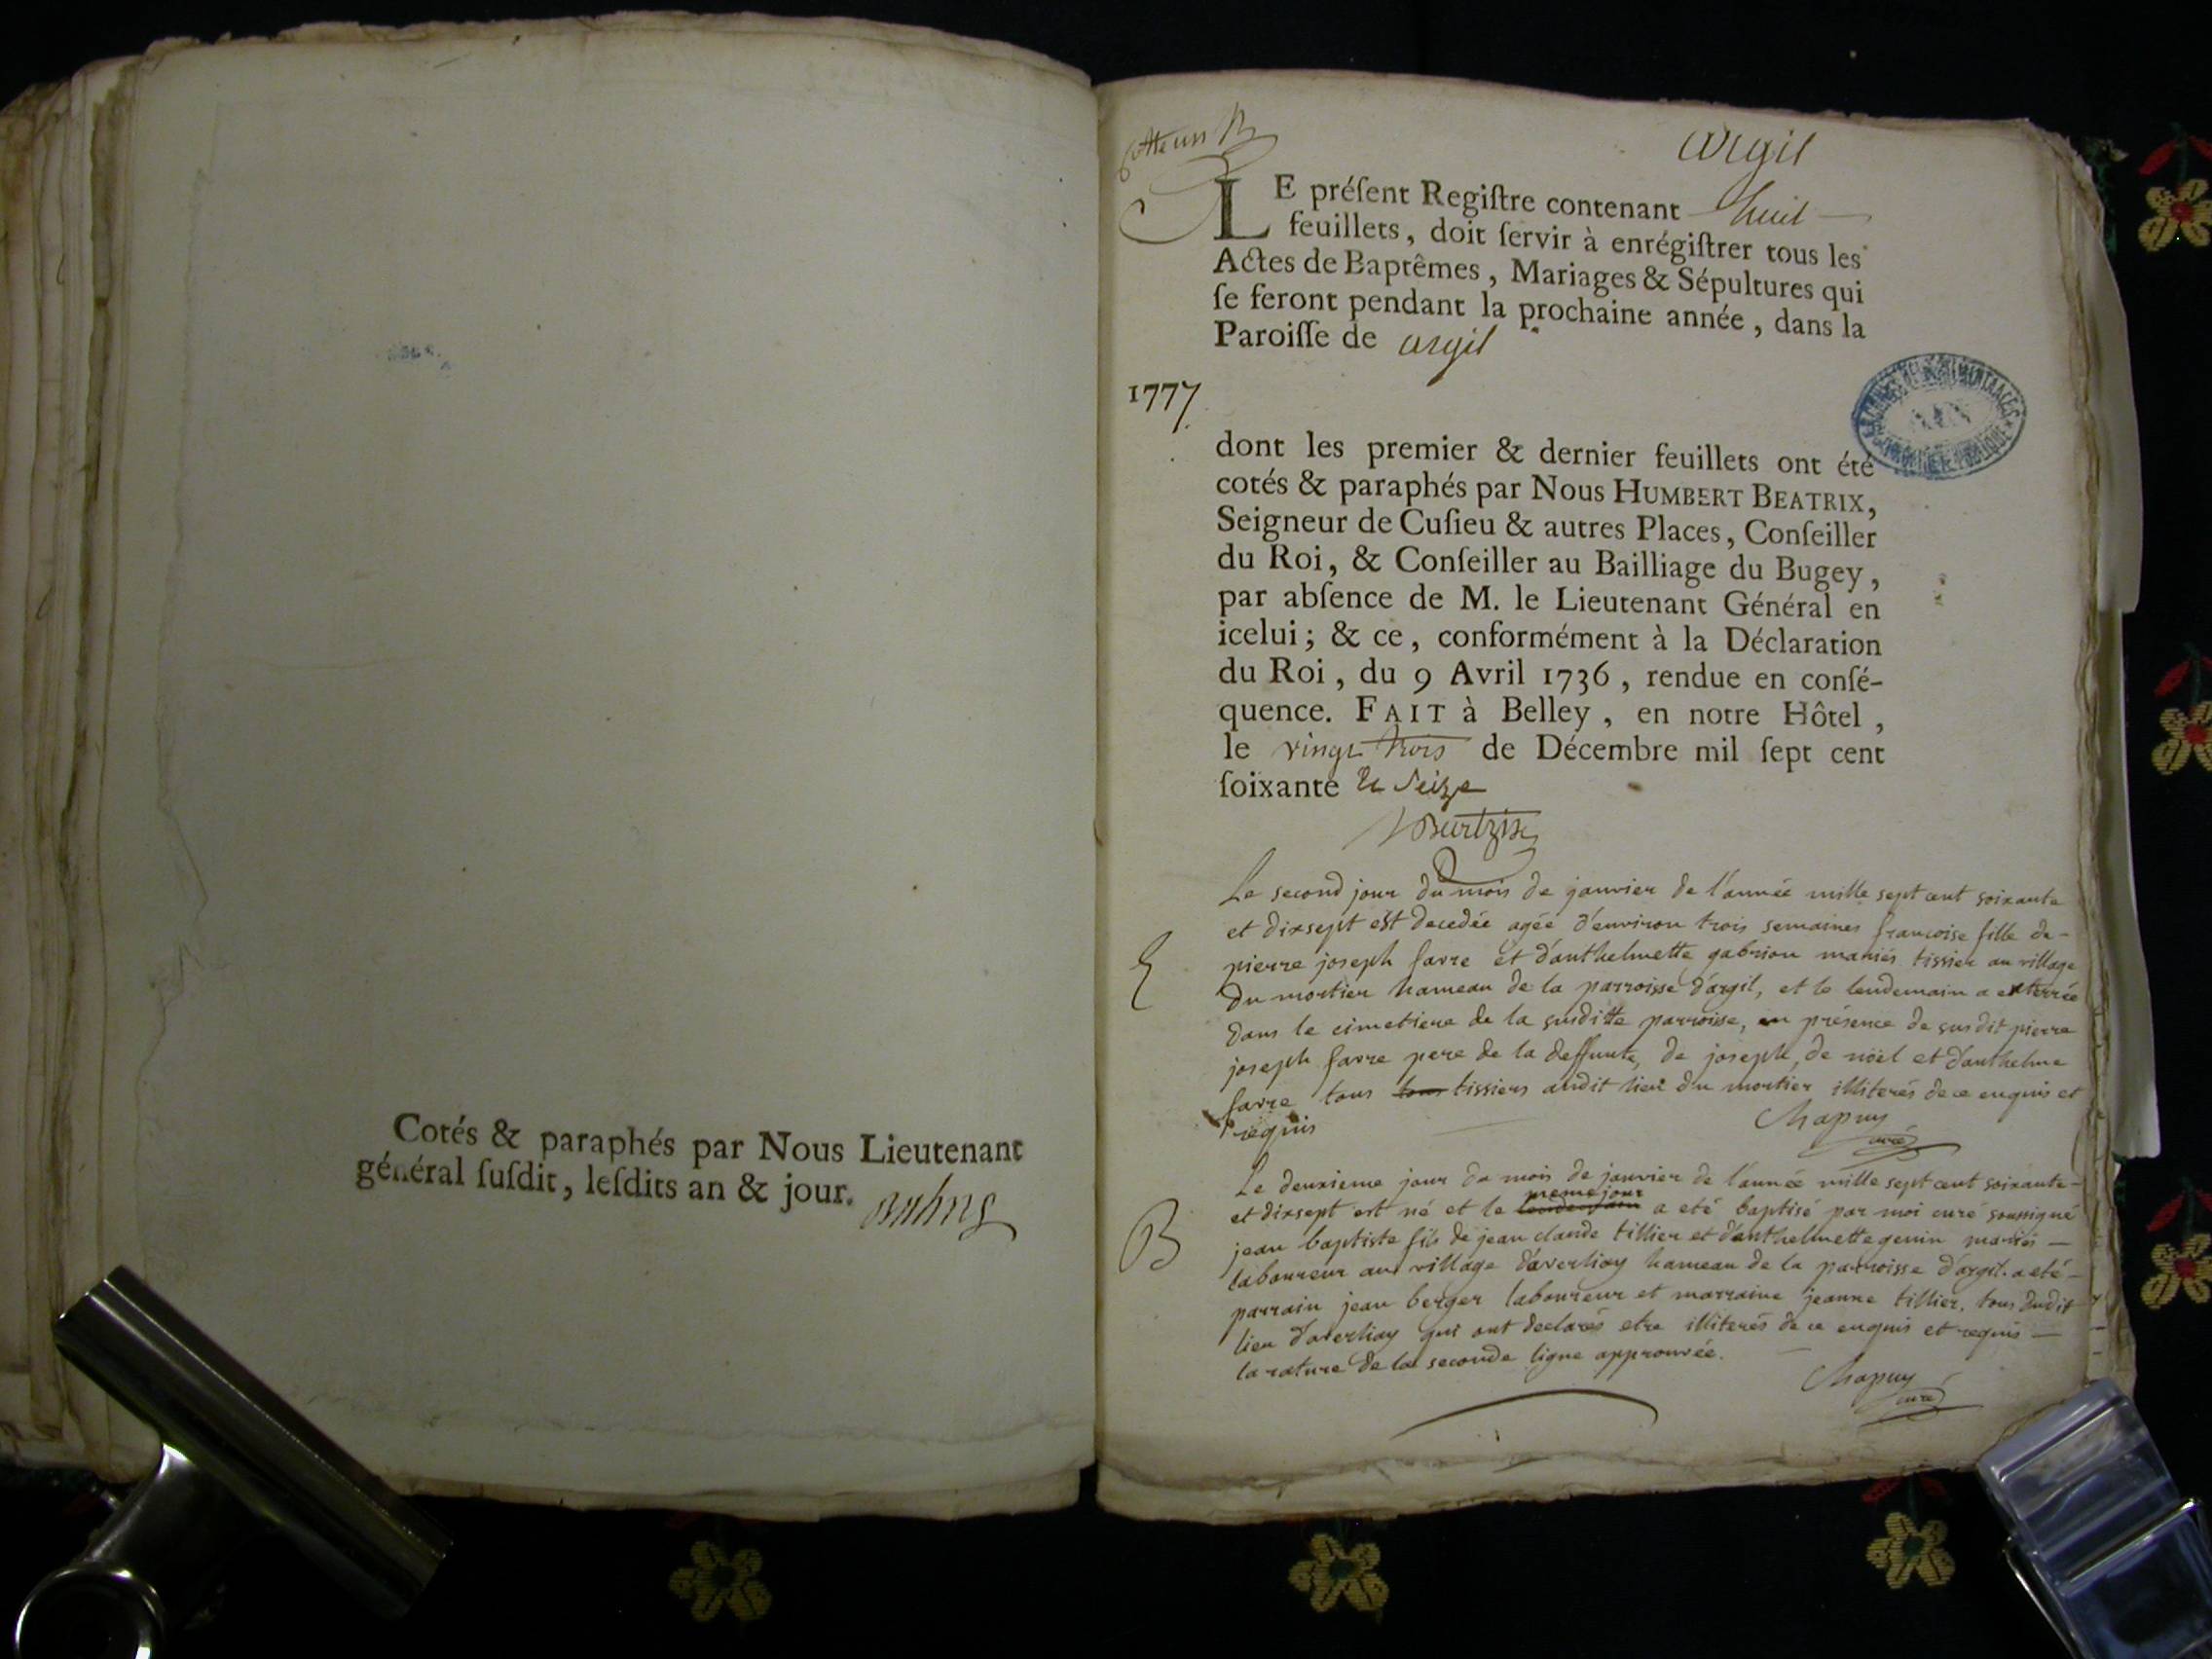 Cotés & paraphés par Nous Lieutenant
général ſuſdit, leſdits an & jour.
Cotte un
argil
LE préſent Regiſtre contenant huit
feuillets, doit ſervir à enrégiſtrer tous les
Actes de Baptêmes, Mariages & Sépultures qui
ſe feront pendant la prochaine année, dans la
Paroiſſe de argil
1777
dont les premier & dernier feuillets ont été
cotés & paraphés par Nous HUMBERT BEATRIX,
Seigneur de Cuſieu & autres Places, Conſeiller
du Roi, & Conſeiller au Bailliage du Bugey,
par abſence de M. le Lieutenant Général en
icelui; & ce, conformément à la Déclaration
du Roi, du 9 Avril 1736, rendue en conſé-
quence. FAIT à Belley, en notre Hôtel,
le vingt trois de Décembre mil ſept cent
ſoixante et Seize
Le second jour du mois de janvier de l'année mille sept cent soixante
et dixsept est decedée agée d'environ trois semaines françoise fille de-
E
pierre joseph favre et d'anthelmette gabrion mariés tissier au village
du mortier hameau de la parroisse d'argil, et le lendemain a enterrée
dans le cimetiere de la susditte parroisse, en présence de susdit pierre
joseph favre pere de la deffunte, de joseph, de nöel et d'anthelme
favre tous tous tissiers audit lieu du mortier illiterés de ce enquis et
requis
Chapuy
curé
Le deuxieme jour du mois de janvier de l'année mille sept cent soixante-
meme jour
et dixsept est né et le lendemain a eté baptisé par moi curé soussigné
B
jean baptiste fils de jean claude tillier et d'anthelmette genin mariés —
laboureur au village d'averliay hameau de la parroisse d'argil. a eté-
parrain jean berger laboureur et marraine jeanne tillier, tous dudit
lieu d'averliay qui ont declarés etre illiterés de ce enquis et requis —
la rature de la seconde ligne approuvée.
Chapuy
curé